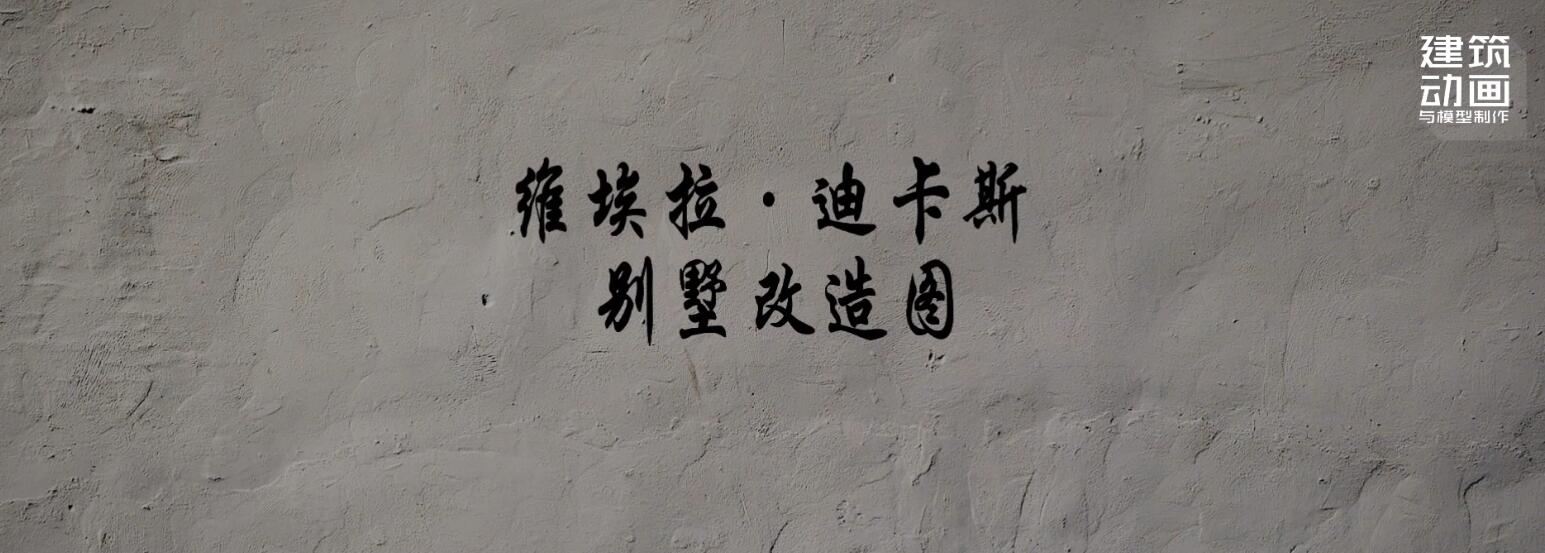 维埃拉·迪卡斯
别墅改造图
建筑
动画
与模型制作